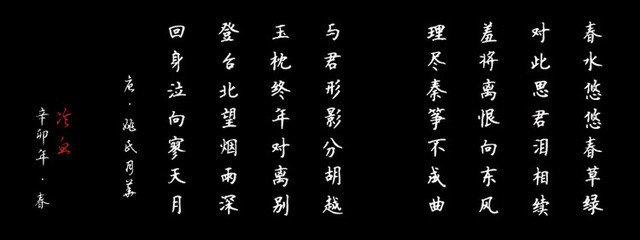 春水悠悠春草绿
对此思君泪相续
羞将离恨向东风
理尽秦筝不成曲
与君形影分胡越
玉枕终年对离别
登台北望烟雨深
回身泣向寥天月
唐·姚氏月华
冷血
辛卯年·春